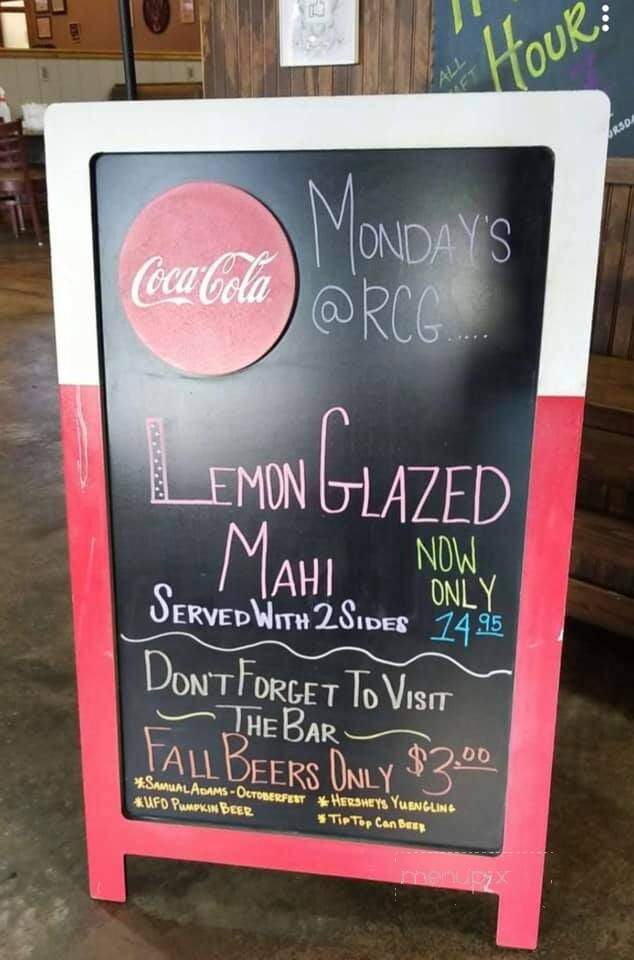 HOUR
ALL
Coca-Cola
MONDAY'S
@RCG.....
LEMON GLAZED
MAHI
NOW
ONLY
14.95
SERVED WITH 2 SIDES
DON'T FORGET TO VISIT
THE BAR
FALL BEERS ONLY $3.00
*SAMUAL ADAMS - OCTOBERFEST
*HERSHEY'S YUENGLING
*UFO PUMPKIN BEER
*TIP TOP CAN BEER
menupix